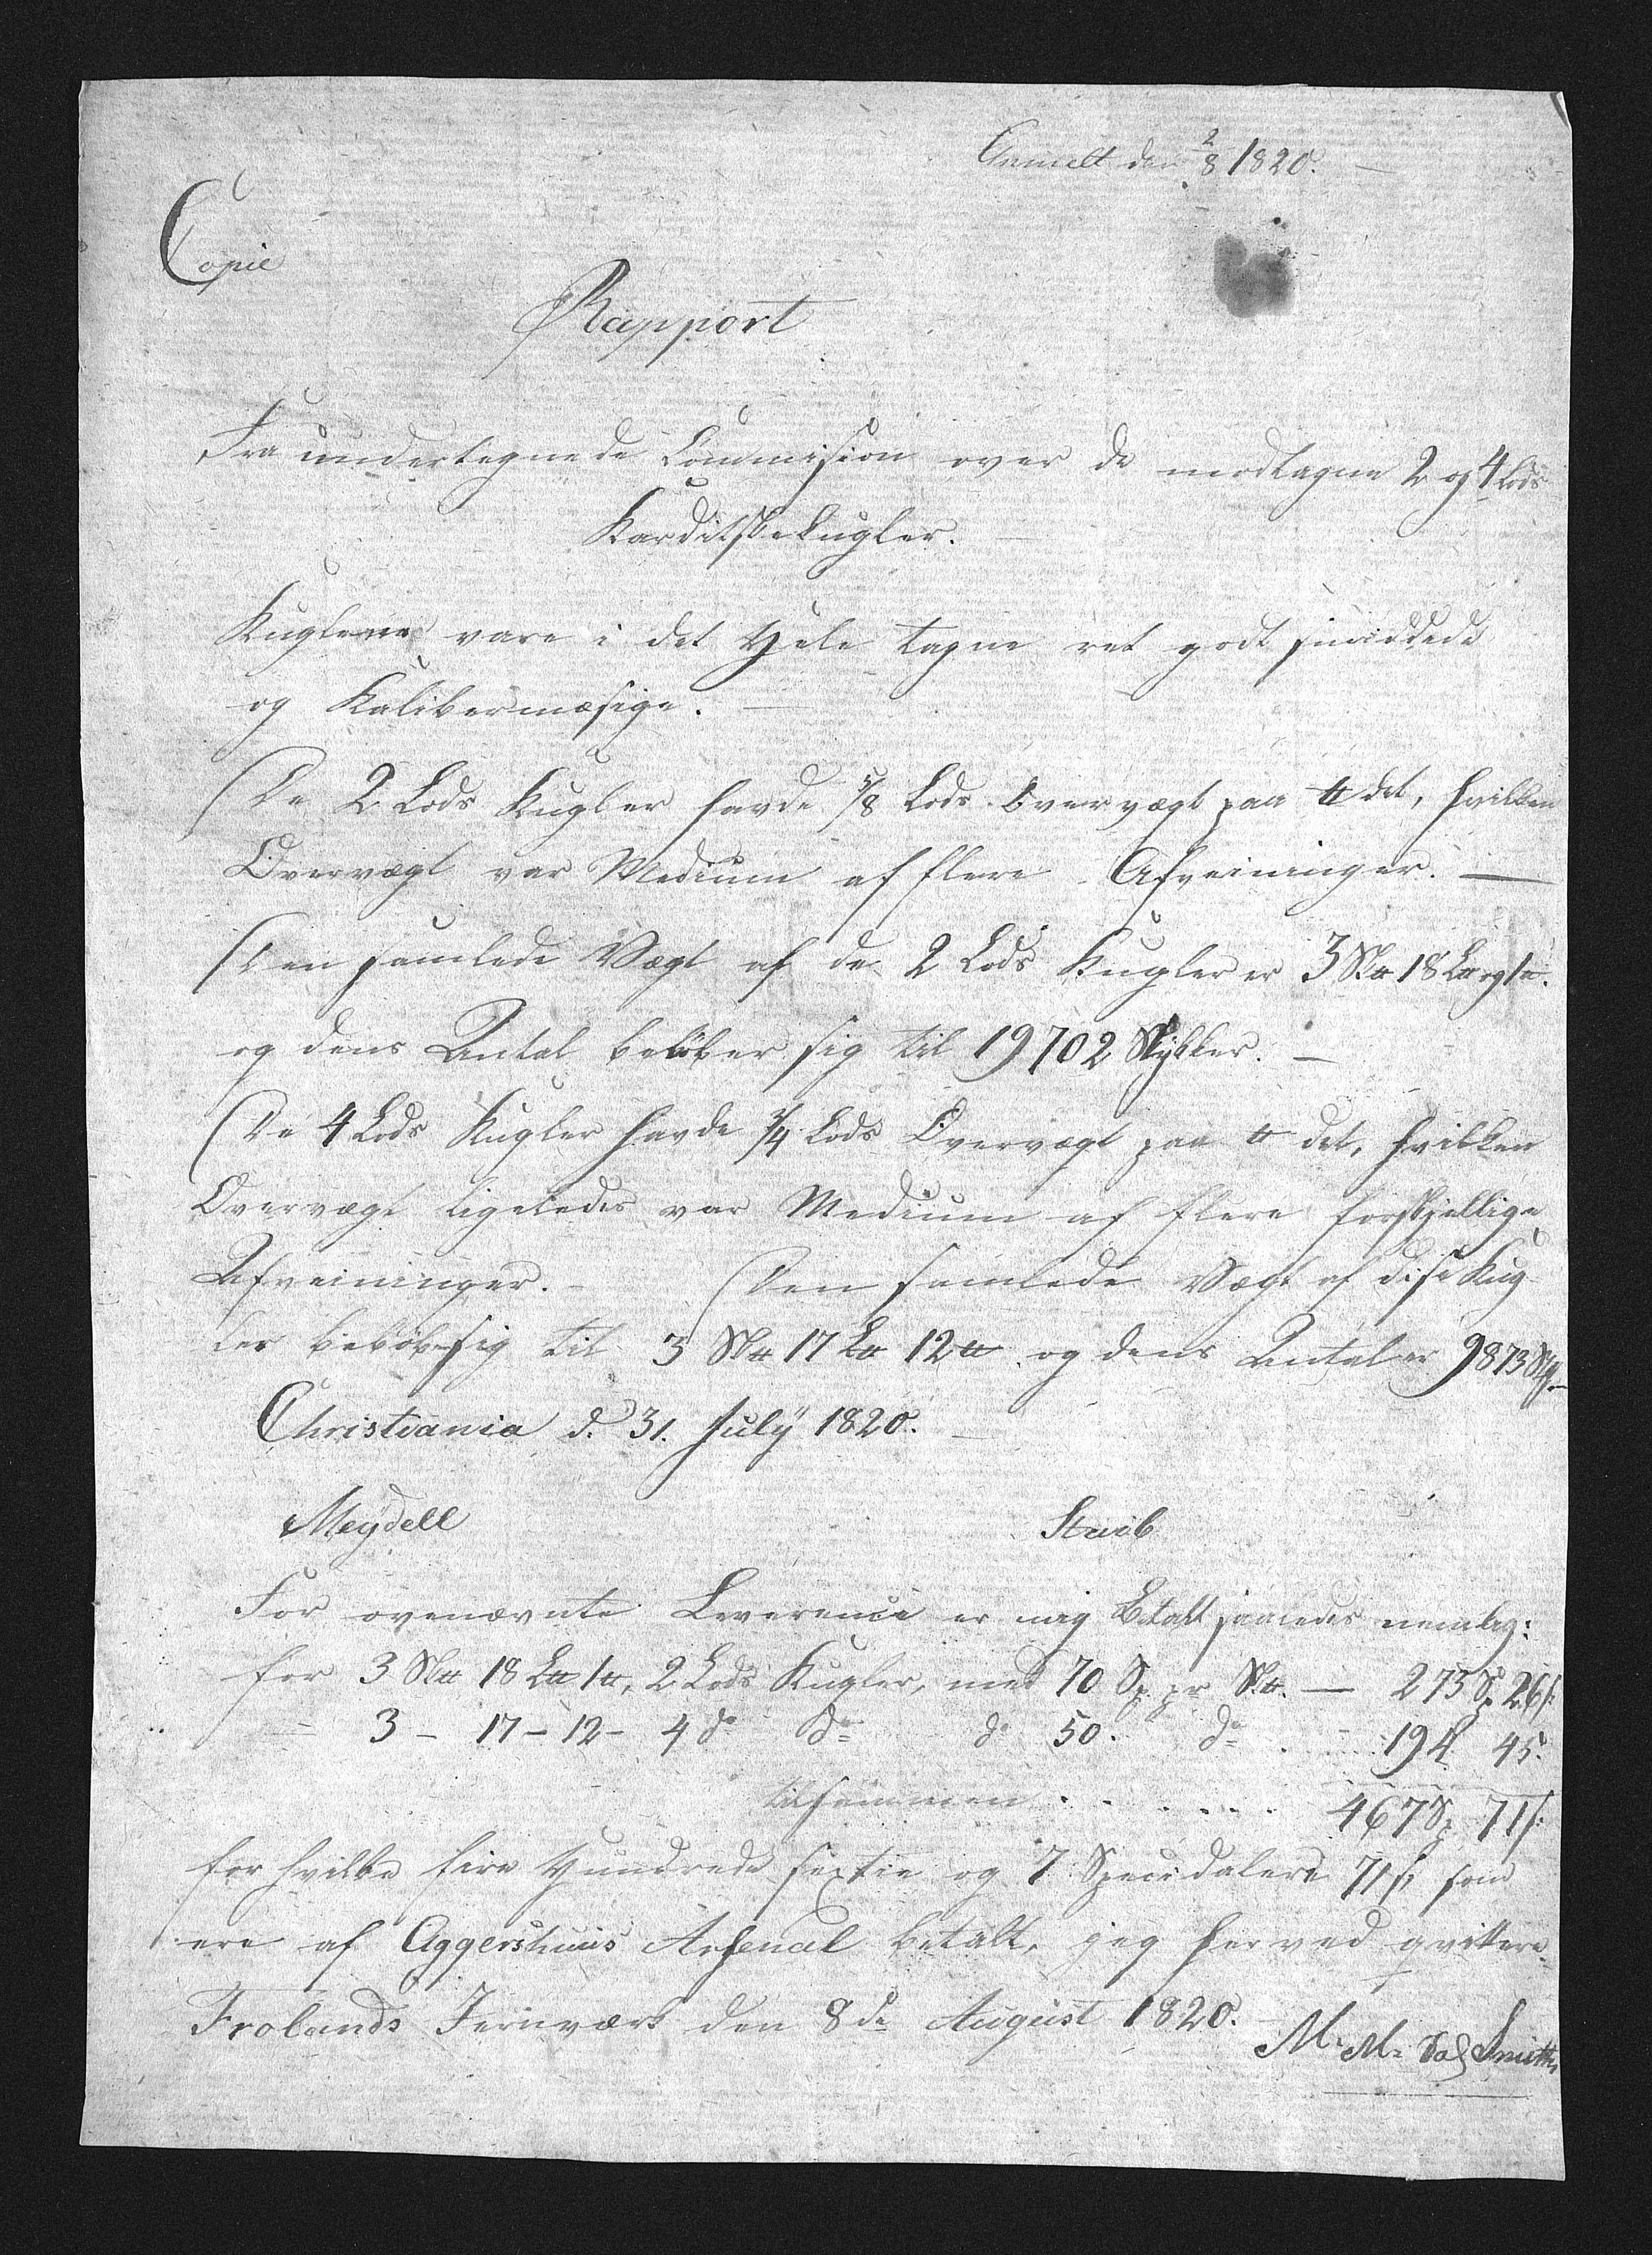 den 2/8 1820.
Copie
Rapport
Fra undertegnede Commission over de modtagne 2 og 4 Lods
Karditske Kugler.
Kuglerne vare i det Hele tagne ret godt smiddede
og Kalibermæssige. —
De 2 Lods Kugler havde 5/8 Lods Overvægt paa ℔det, hvilken
Overvægt var Medium af flere Afveininger. —
Den samlede Vægt af de 2 Lods Kugler er 3 S℔ 18 L℔ og 1℔.
og dens Antal beløber sig til 19702 Stykker. —
De 4 Lods Kugler havde 3/4 Lods Overvægt paa ℔det, hvilken
Overvægt ligeledes var Medium af flere forskjellige
Afveininger. – Den samlede Vægt af disse Kug-
ler beløb sig til 3 S℔ 17 L℔ 12℔ og dens Antal er 9873 St.
Christiania d. 31. July 1820. —
Meydell Staib
For ovenævnte Leverence er mig Betalt saaledes nemlig:
for 3 S℔ 18 L℔ 1℔, 2 Lods Kugler, med 70 Sp. pr S℔. — 273 Sp 26 s:
— 3 – 17 – 12 – 4 do do do 50. do – 194 45.
tilsammen . . . . . . 467 Sp 71 s:
for hvilke fire Hundrede sextie og 7 Speciedalere 71 s: som
ere af Aggershuus Arsenal betalt, jeg herved qvittere.
Frolands Jernværk den 8de August 1820.
M. M. Smith